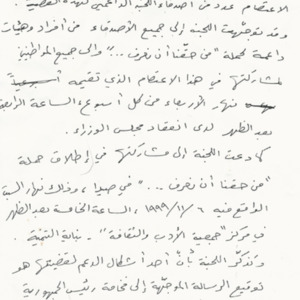 الاعتصام عدد من أصدقاء اللجنة الداعمين لهذه القضية.
وقد توجّهت اللجنة إلى جميع الأصدقاء من أفراد وهيئات
داعمة لحملة "من حقّنا أن نعرف ..." وإلى جميع المواطنين
لمشاركتها في هذا الاعتصام الذي تقيمه أسبوعياً
نهار الأربعاء من كل أسبوع، الساعة الرابعة
بعد الظهر لدى انعقاد مجلس الوزراء.
كما دعت اللجنة إلى مشاركتها في إطلاق حملة
"من حقنا أن نعرف ..." في صيدا، وذلك نهار السبت
الواقع فيه ٦ /١١/ ١٩٩٩، الساعة الخامسة بعد الظهر
في مركز "جمعية الأدب والثقافة" - بناية
وتذكّر اللجنة بأنّ أحد أشكال الدعم لقضيتها هو
توقيع الرسالة الموجّهة إلى فخامة رئيس الجمهورية